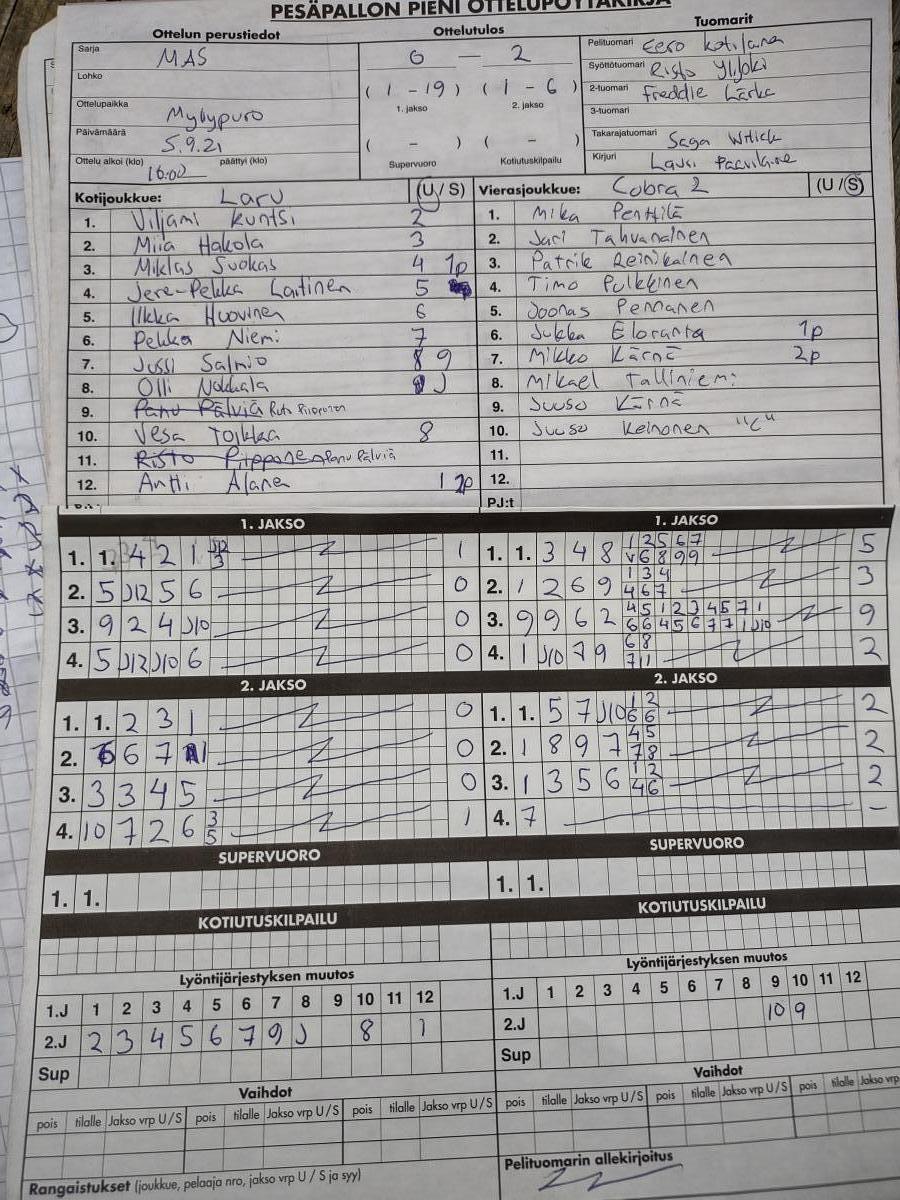 PESÄPALLON PIENI OTTELUPÖYTÄKIRJA
Ottelun perustiedot
Ottelutulos
Tuomarit
Sarja MAS
6 — 2
Pelituomari Eero Kotilana
Lohko
( 1 - 19 ) ( 1 - 6 )
Syöttötuomari Risto Ylijoki
1. jakso 2. jakso
2-tuomari Freddie Lärka
Ottelupaikka Myllypuro
3-tuomari
Päivämäärä 5.9.21
( - ) ( - )
Takarajatuomari Saga
Ottelu alkoi (klo) 16:00 päättyi (klo)
Supervuoro Kotiutuskilpailu
Kirjuri Lauri
Kotijoukkue: Laru (U / S) Vierasjoukkue: Cobra 2 (U / S)
1. Viljami Kuntsi 2 1. Mika Penttilä
2. Miia Hakola 3 2. Jari Tahvanainen
3. Miklas Suokas 4 1p 3. Patrik Reinikainen
4. Jere-Pekka Laitinen 5 4. Timo Pulkkinen
5. Ilkka Huovinen 6 5. Joonas Pennanen
6. Pekka Niemi 7 6. Jukka Eloranta 1p
7. Jussi Salmio 8 9 7. Mikko Kärnä 2p
8. Olli Nokkala J 8. Mikael Talliniemi
9. Panu Pälviä 9. Juuso Kärnä
10. Vesa Toikka 8 10. Juuso Keinonen "C"
11. Risto Piipponen Panu Pälviä 11.
12. Antti Alanen 1 2p 12.
PJ:t
1. JAKSO 1. JAKSO
1. 1. 4 2 1 J12 3 1 1. 1. 3 4 8 1 2 5 6 7 v 6 8 9 9 5
2. 5 J12 5 6 0 2. 1 2 6 9 1 3 4 4 6 7 3
3. 9 2 4 J10 0 3. 9 9 6 2 4 5 1 2 3 4 5 7 1 6 6 4 5 6 7 7 1 J10 9
4. 5 J12 J10 6 0 4. 1 J10 7 9 6 8 7 11 2
2. JAKSO 2. JAKSO
1. 1. 2 3 1 0 1. 1. 5 7 J10 1 2 6 6 2
2. 6 6 7 1 0 2. 1 8 9 7 4 5 7 8 2
3. 3 3 4 5 0 3. 1 3 5 6 1 2 4 6 2
4. 10 7 2 6 3 5 1 4. 7 -
SUPERVUORO SUPERVUORO
1. 1. 1. 1.
KOTIUTUSKILPAILU KOTIUTUSKILPAILU
Lyöntijärjestyksen muutos Lyöntijärjestyksen muutos
1.J 1 2 3 4 5 6 7 8 9 10 11 12 1.J 1 2 3 4 5 6 7 8 9 10 11 12
2.J 2 3 4 5 6 7 9 J 8 1 2.J 10 9
Sup Sup
Vaihdot Vaihdot
pois tilalle Jakso vrp U / S pois tilalle Jakso vrp U / S pois tilalle Jakso vrp U / S pois tilalle Jakso vrp U / S pois tilalle Jakso vrp U / S pois tilalle Jakso vrp
Rangaistukset (joukkue, pelaaja nro, jakso vrp U / S ja syy)
Pelituomarin allekirjoitus